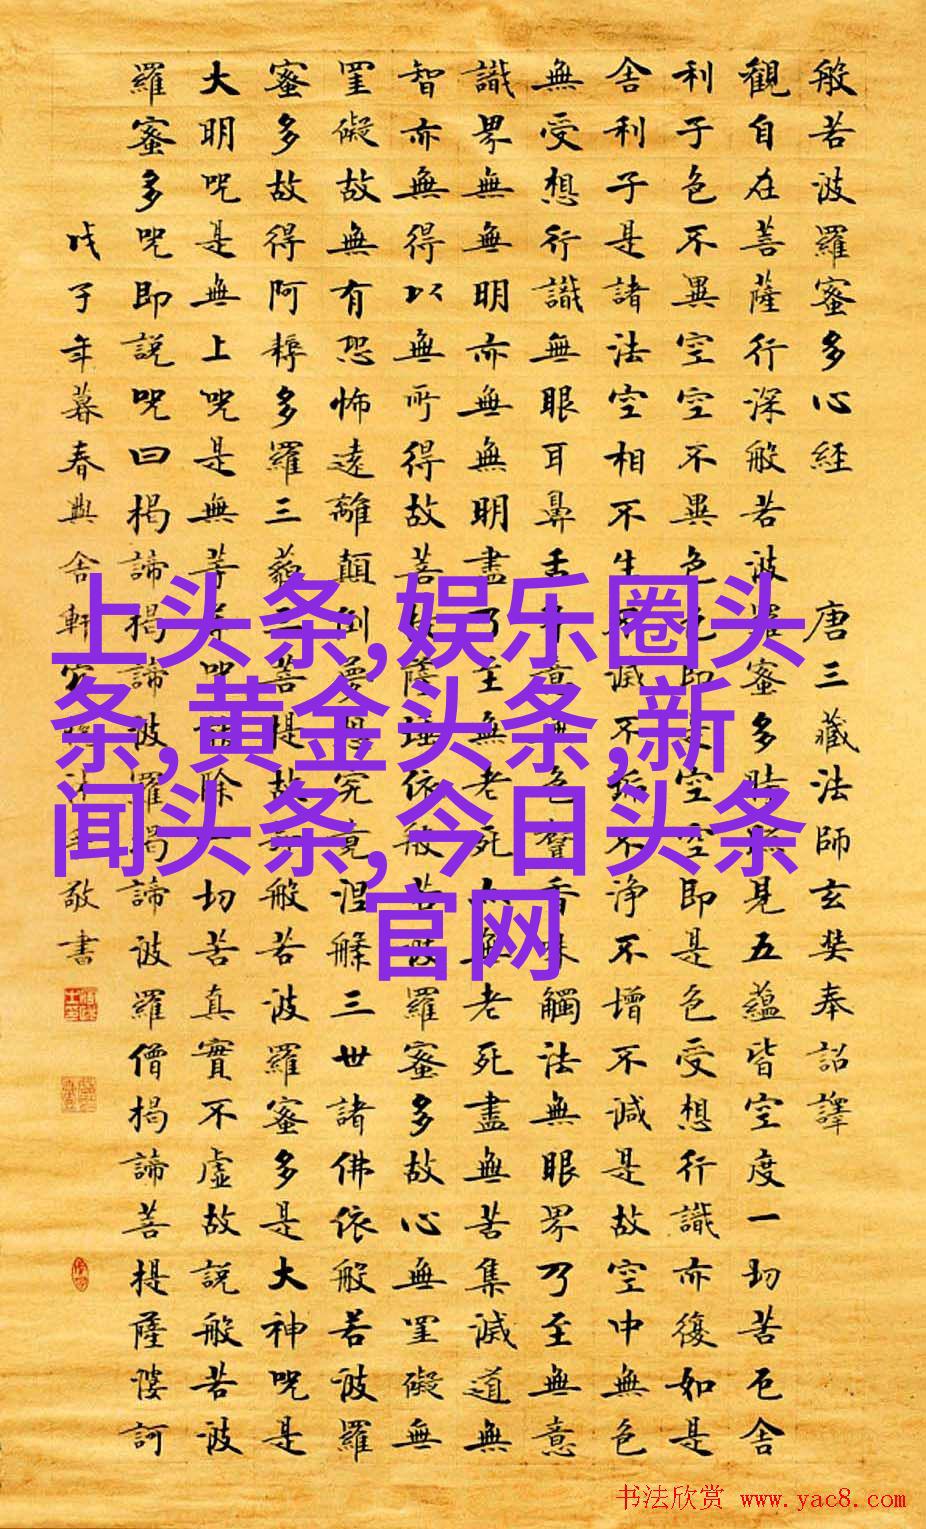 般若波羅蜜多心經 唐三藏法師玄奘奉詔譯
觀自在菩薩行深般若波羅蜜多時照見五蘊皆空度一切苦厄舍
利子色不異空空不異色色即是空空即是色受想行識亦復如是
舍利子是諸法空相不生不滅不垢不淨不增不減是故空中無色
無受想行識無眼耳鼻舌身意無色聲香味觸法無眼界乃至無意
識界無無明亦無無明盡乃至無老死亦無老死盡無苦集滅道無
智亦無得以無所得故菩提薩埵依般若波羅蜜多故心無罣礙無
罣礙故無有恐怖遠離顛倒夢想究竟涅槃三世諸佛依般若波羅
蜜多故得阿耨多羅三藐三菩提故知般若波羅蜜多是大神咒是
大明咒是無上咒是無等等咒能除一切苦真實不虛故說般若波
羅蜜多咒即說咒曰揭諦揭諦波羅揭諦波羅僧揭諦菩提薩婆訶
戊子年暮春興舍軒沐手敬書
上头条,娱乐圈头
条,黄金头条,新
闻头条,今日头条
官网
书法欣赏 www.yac8.com